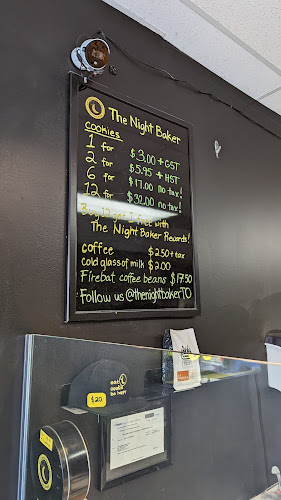 The Night Baker
cookies
1 for $3.00 + GST
2 for $5.95 + HST
6 for $17.00 no tax!
12 for $32.00 no tax!
Buy 12 get 1 free with
The Night Baker Rewards!
coffee $2.50+tax
cold glass of milk $2.00
Firebat coffee beans $17.50
Follow us @thenightbakerTO
eat
cookie
be happy
$20